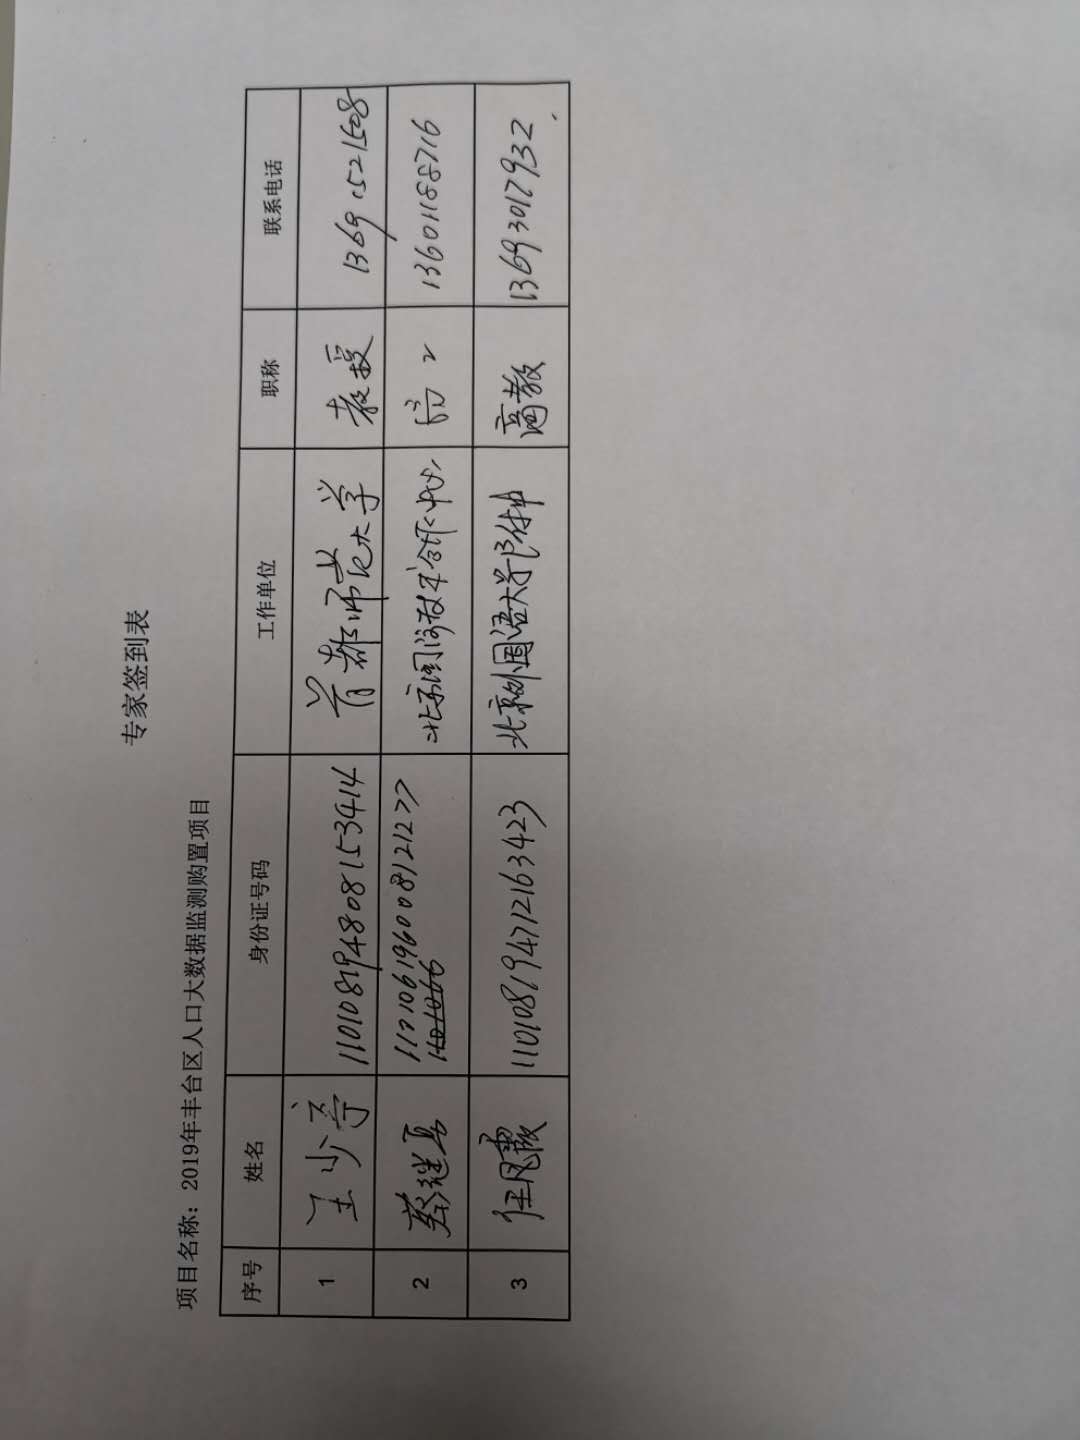 专家签到表
项目名称：2019年丰台区人口大数据监测购置项目
序号 姓名 身份证号码 工作单位 职称 联系电话
1 王少亭 110108194808153414 首都师范大学 教授 13691521508
2 蔡继昌 11010619600812127 北京国际技术合作中心 高工 13601188716
3 任凤霞 110108194712163423 北京外国语大学附中 高教 13693017932